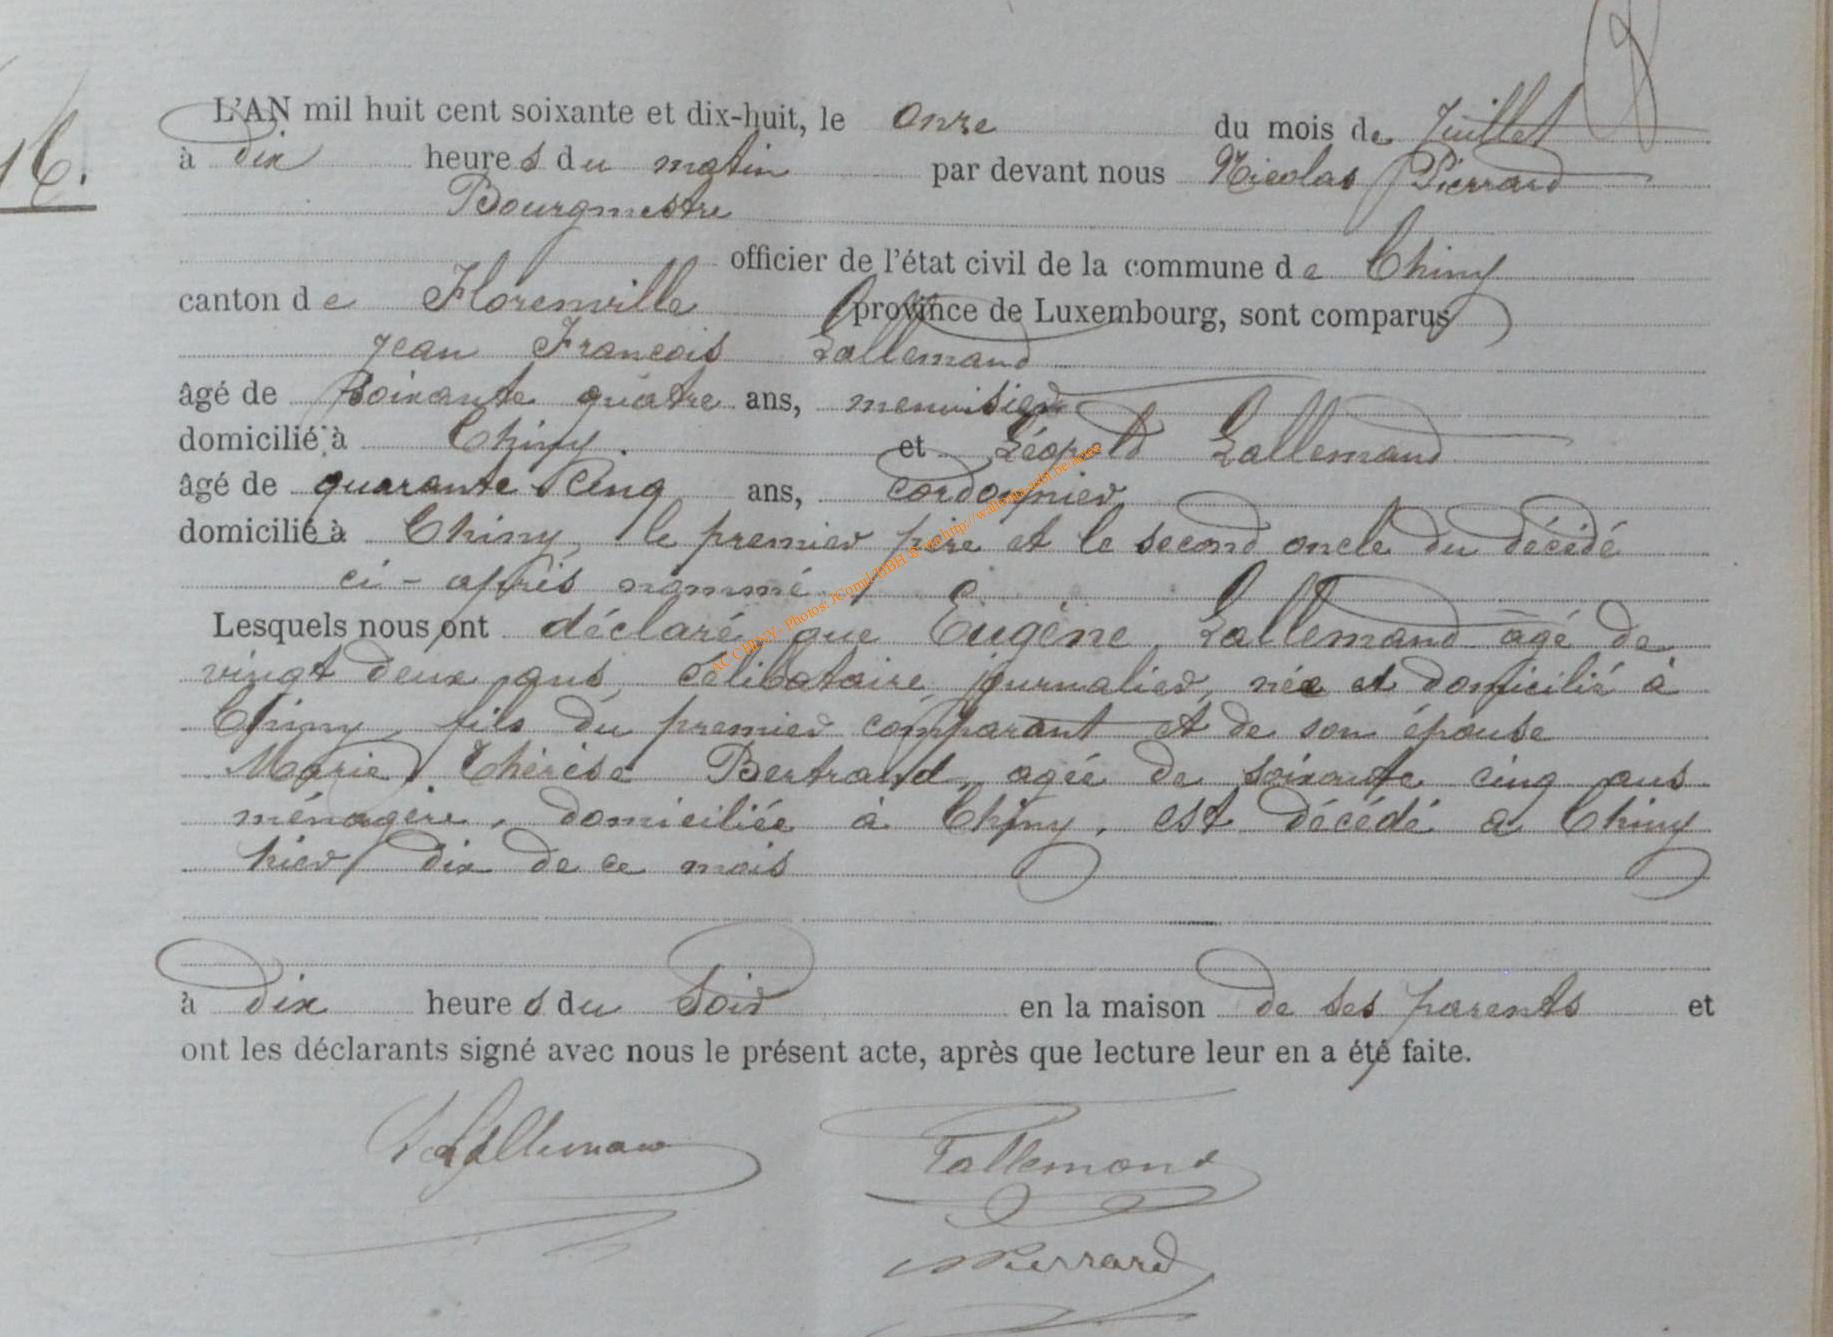 16.
L'AN mil huit cent soixante et dix-huit, le onze du mois de Juillet
à dix heures du matin par devant nous Nicolas Pierrard
Bourgmestre
officier de l'état civil de la commune de Chiny
canton de Florenville province de Luxembourg, sont comparus
Jean François Lallemand
âgé de soixante quatre ans, menuisier
domicilié à Chiny. et Léopold Lallemand
âgé de quarante cinq ans, cordonnier
domicilié à Chiny, le premier père et le second oncle du décédé
ci-après nommé
Lesquels nous ont déclaré que Eugène Lallemand agé de
vingt deux ans, célibataire, journalier, née et domicilié à
Chiny, fils du premier comparant et de son épouse
Marie Thérèse Bertrand, agée de soixante cinq ans
ménagère, domiciliée à Chiny, est décédé a Chiny
hier dix de ce mois
à dix heures du soir en la maison de ses parents et
ont les déclarants signé avec nous le présent acte, après que lecture leur en a été faite.
Lallemand
NPierrard
AC CHINY - Photos: